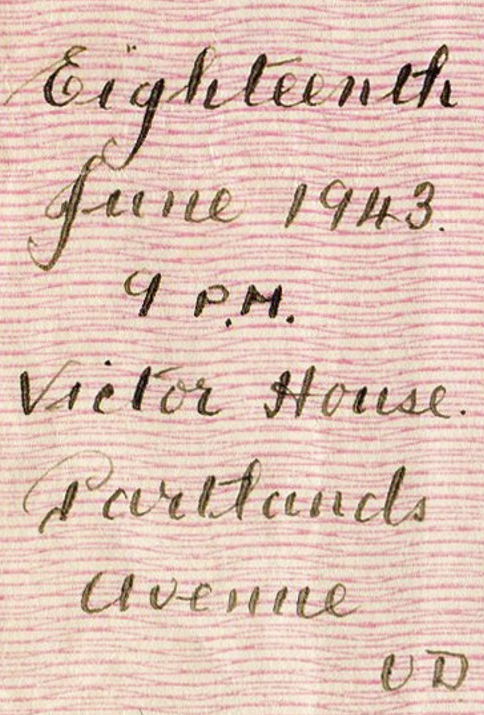 Eighteenth
June 1943.
9 P.M.
Victor House.
Partlands
Avenue
UD